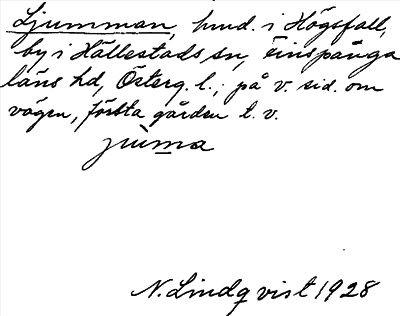 Ljumman, hmd. i Högsfall,
by i Hällestads sn, Finspånga
läns hd, Österg. l.; på v. sid. om
vägen, första gården t. v.
N. Lindqvist 1928